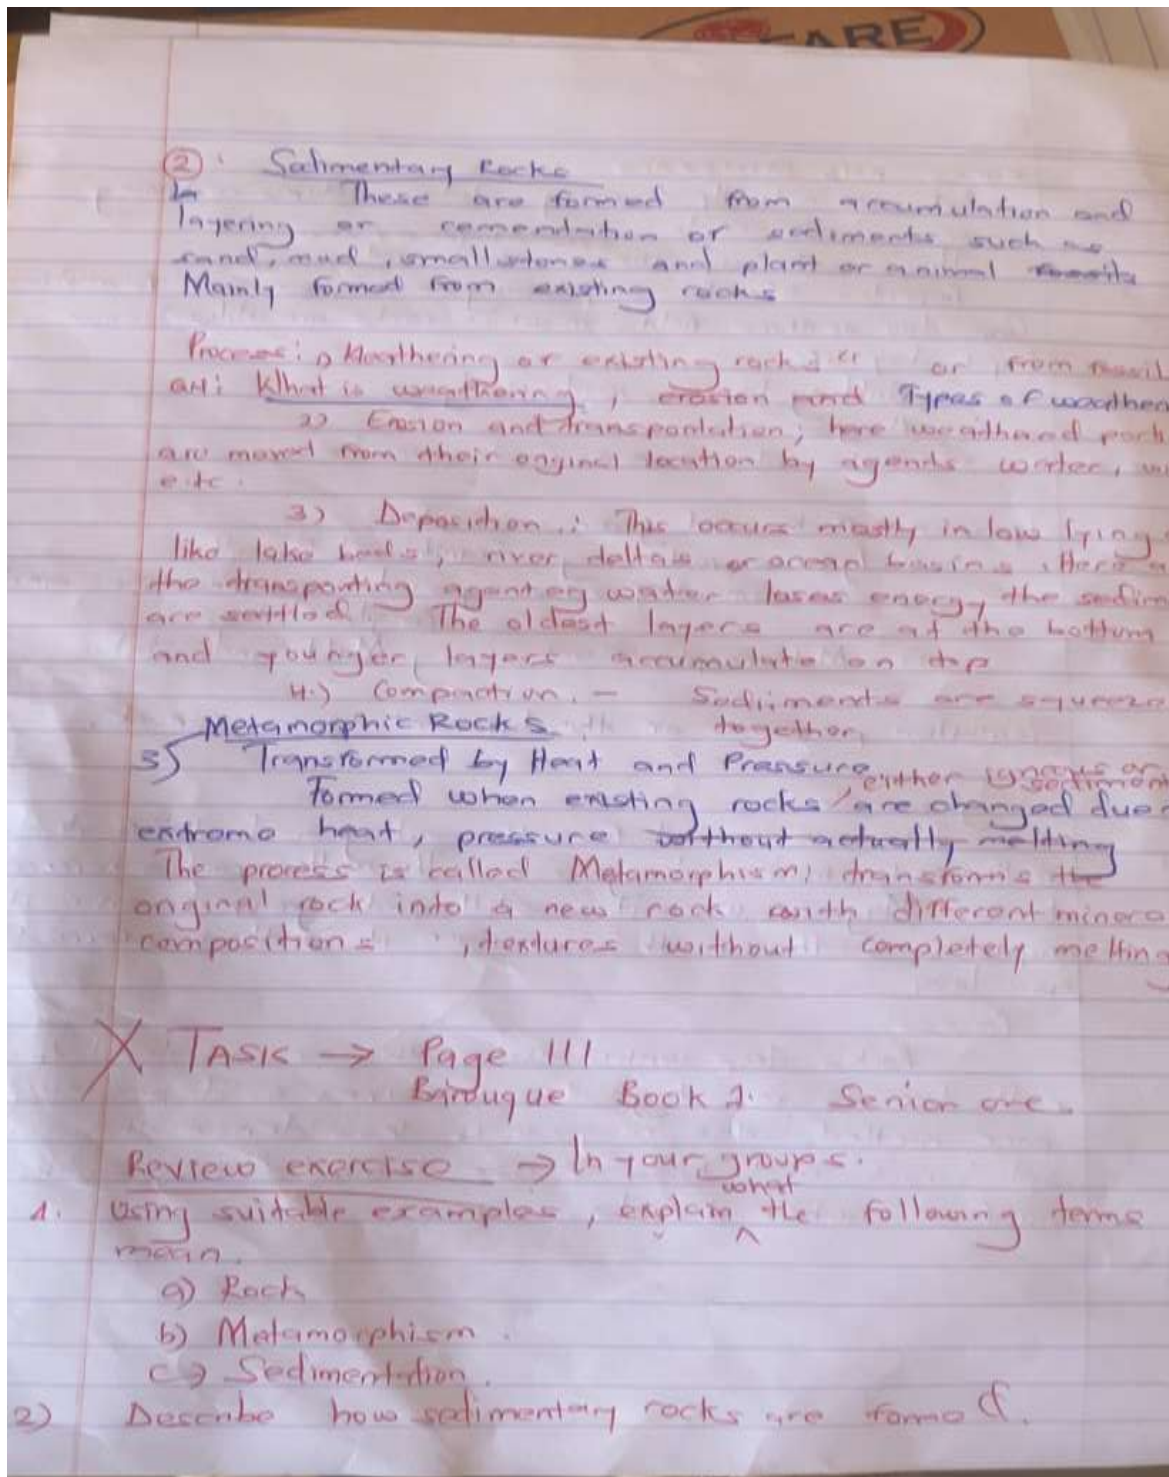 FARE
② Sedimentary Rocks
These are formed from accumulation and
layering or cementation of sediments such as
sand, mud, small stones and plant or animal
Mainly formed from existing rocks
Process: 1) Weathering of existing rocks or from fossil
What is weathering, erosion and Types of weather
2) Erosion and transportation; here weathered
are moved from their original location by agents water,
e.t.c.
3) Deposition.: This occurs mostly in low lying
like lake beds, river deltas or ocean basins. Here
the transporting agent eg water loses energy the sedim
are settled The oldest layers are at the bottom
and younger layers accumulate on top
4.) Compaction. - Sediments are squeeze
together
3) Metamorphic Rocks
Transformed by Heat and Pressure
either igneous or
Formed when existing rocks are changed due
extreme heat, pressure without actually melting
The process is called Metamorphism, transforms the
original rock into a new rock with different minera
compositions, textures without completely melting
X TASK → Page 111
Book 1. Senior one.
Review exercise → In your groups.
what
1. Using suitable examples, explain ^ the following terms
mean.
a) Rock
b) Metamorphism.
c) Sedimentation.
2) Describe how sedimentary rocks are formed.